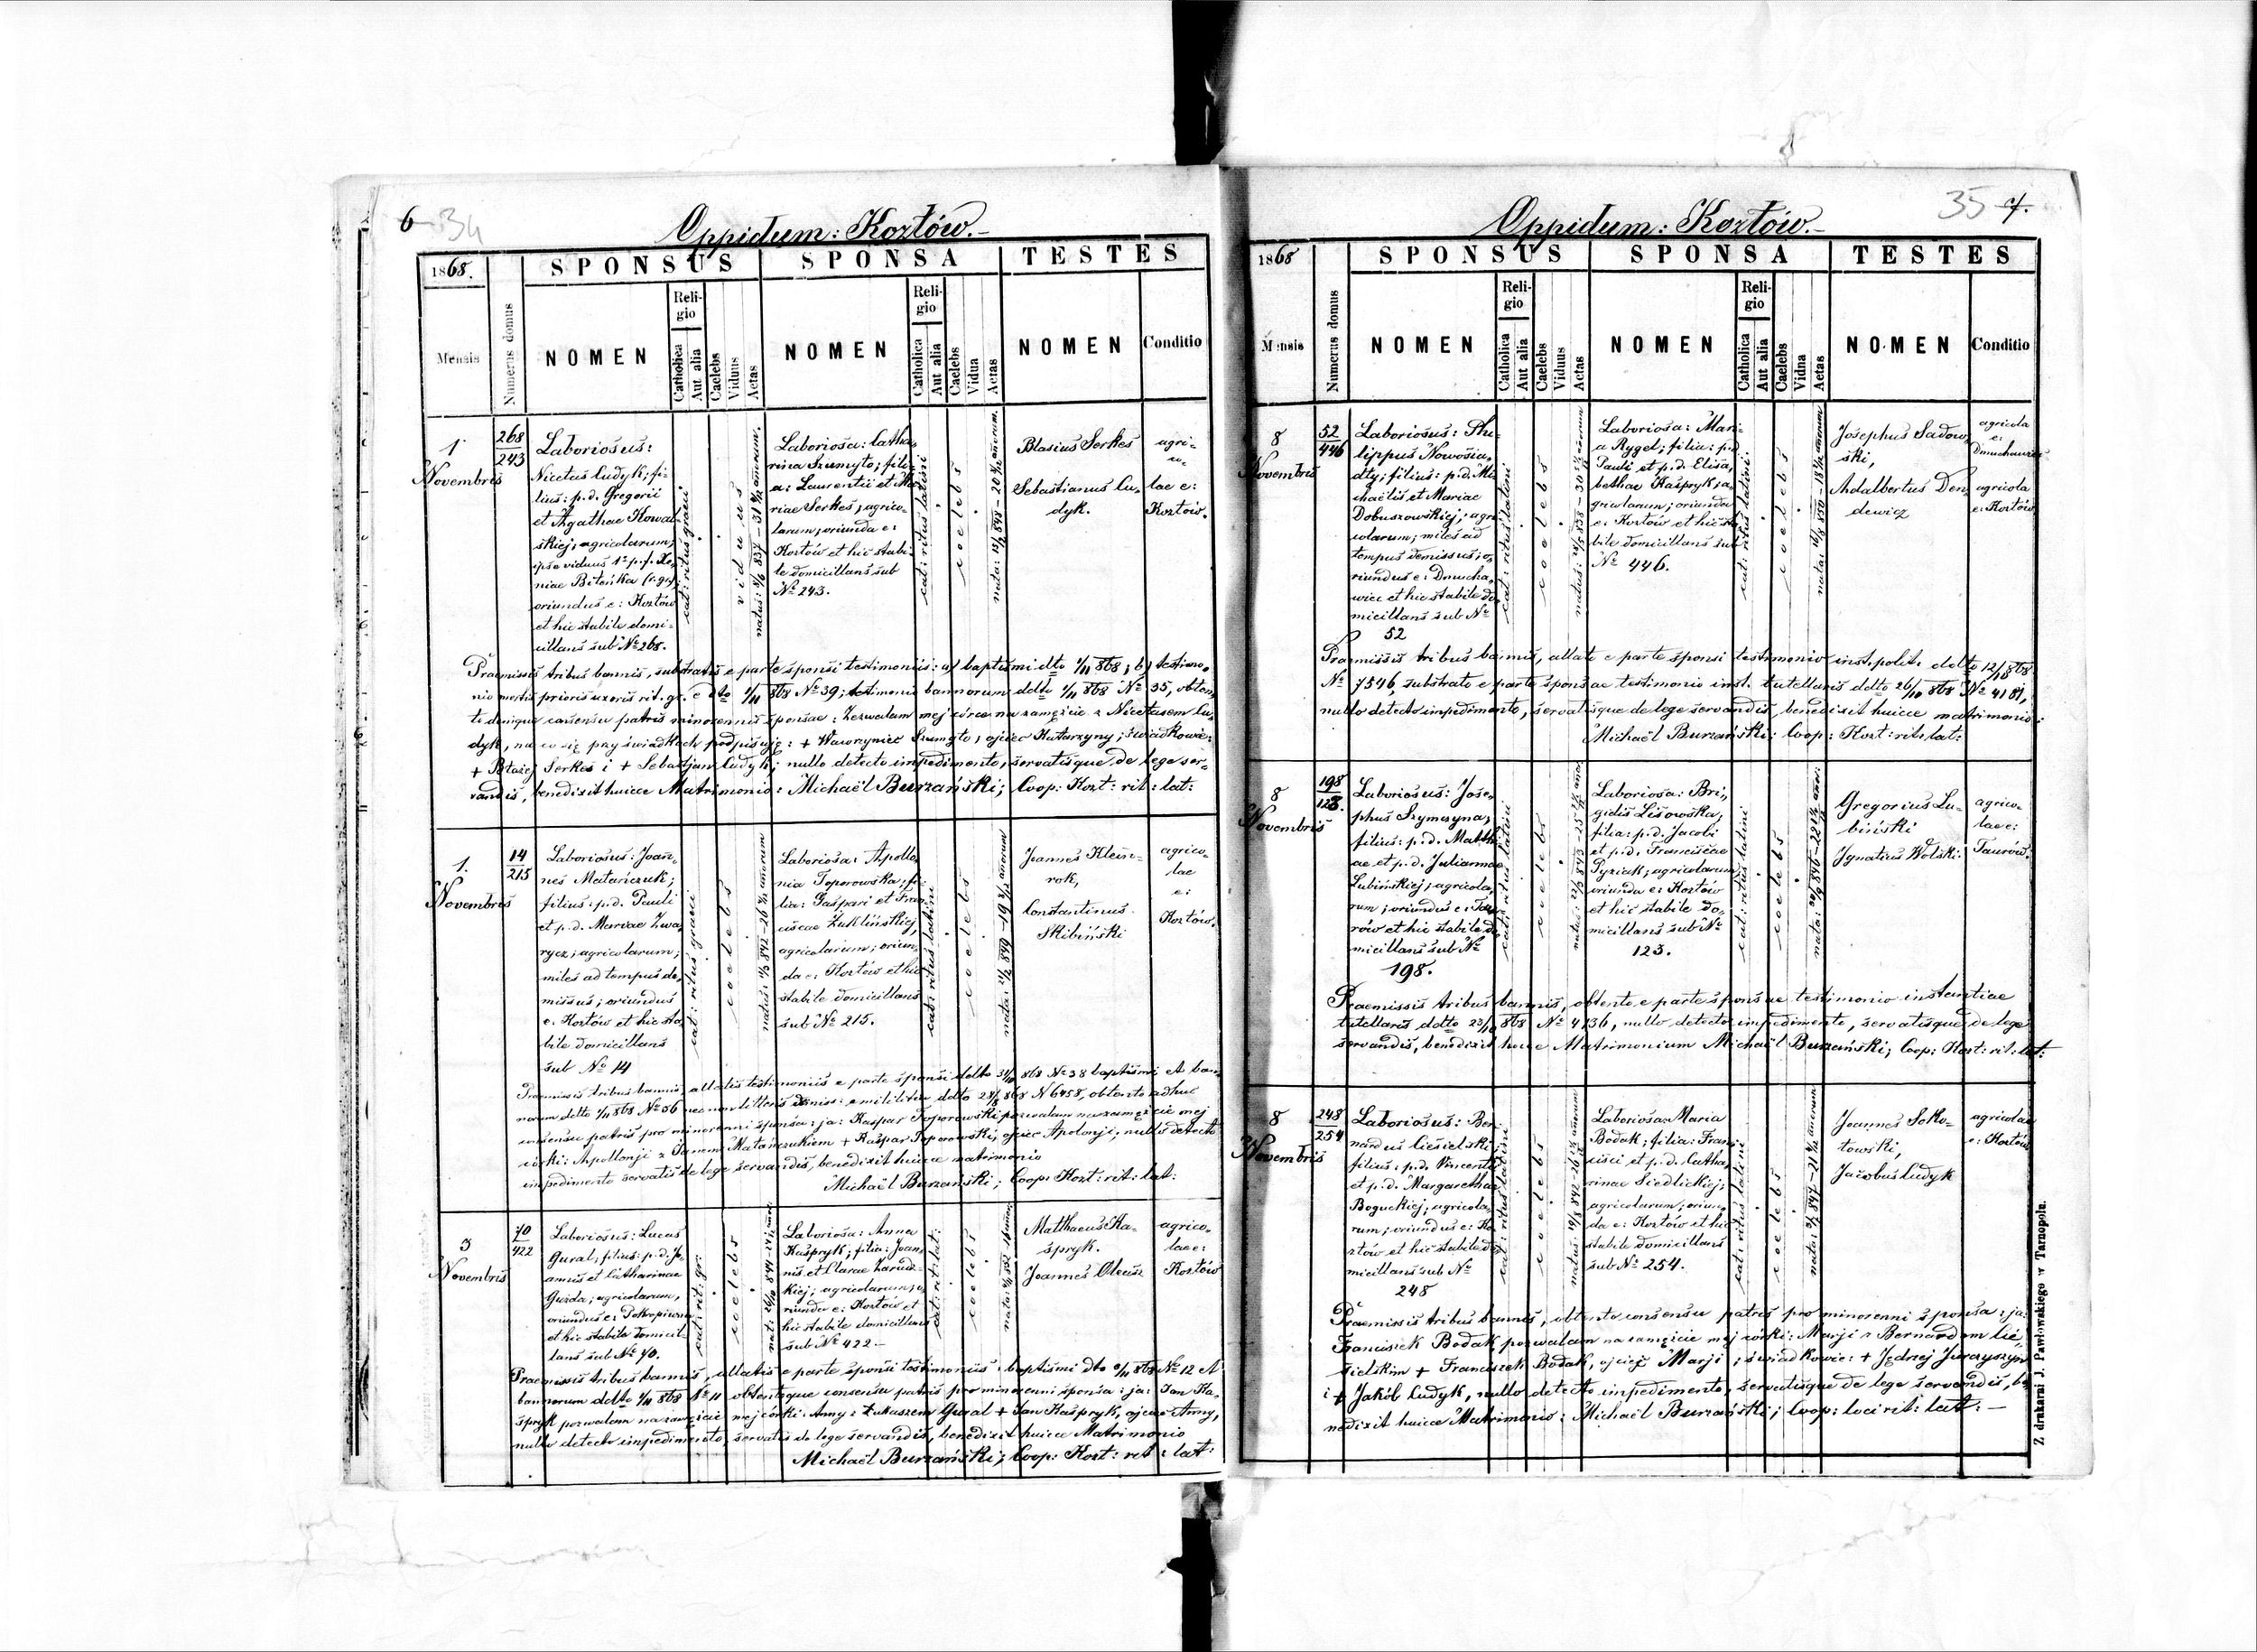 6
34
Oppidum: Kozłów.
1868.
SPONSUS
SPONSA
TESTES
Mensis
Numerus domus
NOMEN
Religio
Catholica
Aut alia
Caelebs
Viduus
Aetas
NOMEN
Religio
Catholica
Aut alia
Caelebs
Vidua
Aetas
NOMEN
Conditio
1
Novembris
268
243
Laboriosus:
Nicetas Cudyk; fi-
lius: p. d. Gregorii
et Agathae Kowal-
skiej; agricolarum;
ipse viduus 1º p. f. Xe-
niae Bitońka
oriundus e: Kozłów
et hic stabile domi-
cillans sub Nº 268.
cat: ritus graeci
viduus
Laboriosa: Catha-
rina Szumyło; fili-
a: Laurentii et Ma-
riae Serkes; agrico-
larum; oriunda e:
Kozłów et hic stabi-
le domicillans sub
Nº 243.
cat: ritus latini
coelebs
Blasius Serkes
Sebastianus Cu-
dyk.
agri-
co-
lae e:
Kozłów.
Praemissis tribus bannis, substratis e parte sponsi testimoniis: a) baptismi dto 1/11 868; b) testimo-
nio mortis prioris uxoris rit. gr. c dto 1/11 868 Nº 39; testimonio bannorum ddto 1/11 868 Nº 35, obten-
to denique consensu patris minorennis sponsae: Zezwalam mej córce na zamęzcie z Nicetasem Cu-
dyk, na co się przy świadkach podpisuję: + Wawrzyniec Szumyło, ojciec Katarzyny; świadkowie:
+ Błażej Serkes i + Sebastjan Cudyk; nullo detecto impedimento, servatisque de lege ser-
vandis, benedixit huicce Matrimonio: Michaël Burzański; Coop: Kozł: rit: lat:
1.
Novembris
14
215
Laboriosus: Joan-
nes Matańczuk;
filius: p. d. Pauli
et p. d. Mariae Zwa-
rycz; agricolarum;
miles ad tempus de-
missus; oriundus
e: Kozłów et hic sta-
bile domicillans
sub Nº 14
cat: ritus graeci
coelebs
Laboriosa: Apollo-
nia Toporowska; fi-
lia: Gaspari et Fran-
ciscae Żuklińskiej,
agricolarum; oriun-
da e: Kozłów et hic
stabile domicillans
sub Nº 215.
cat: ritus latini
coelebs
Joannes Klein-
rok,
Constantinus
Skibiński
agrico-
lae
e:
Kozłów.
Praemissis tribus bannis, allatis testimoniis e parte sponsi ddto 31/10 868 Nº 38 baptismi et ban-
norum ddto 1/11 868 Nº 36 nec non litteris dimiss: e militia ddto 868 N 6458, obtento adhuc
consensu patris pro minorenni sponsa: ja: Kaspar Toporowski pozwalam na zamęzcie mej
córki: Apollonji z Janem Matańczukiem + Kaspar Toporowski, ojciec Apolonji; nullo detecto
impedimento servatis de lege servandis, benedixit huicce matrimonio
Michaël Burzański; Coop: Kozł: rit: lat:
3
Novembris
70
422
Laboriosus: Lucas
Gural; filius: p. d. Jo-
annis et Catharinae
Guida; agricolarum,
oriundus e: Pokropiwna
et hic stabile domicil-
lans sub Nº 70.
cat: rit: gr:
coelebs
Laboriosa: Anna
Kaspryk; filia: Joan-
nis et Clarae Zarud-
kiej; agricolarum; o-
riunda e: Kozłów et
hic stabile domicillans
sub Nº 422.—
cat: rit: lat:
coelebs
Matthaeus Ka-
spryk.
Joannes Olcusz
agrico-
lae e:
Kozłów
Praemissis tribus bannis, allatis e parte sponsi testimoniis baptismi dto 868 Nº 12 et
bannorum ddto 1/11 868 Nº 11 obtentoque consensu patris pro minorenni sponsa: ja: Jan Ka-
spryk pozwalam na zamęzcie mej córki: Anny z Łukaszem Gural + Jan Kaspryk, ojciec Anny,
nullo detecto impedimento, servatis de lege servandis, benedixit huicce Matrimonio
Michaël Burzański; Coop: Kozł: rit: lat:
35
7.
Oppidum: Kozłów.
1868
SPONSUS
SPONSA
TESTES
Mensis
Numerus domus
NOMEN
Religio
Catholica
Aut alia
Caelebs
Viduus
Aetas
NOMEN
Religio
Catholica
Aut alia
Caelebs
Vidua
Aetas
NOMEN
Conditio
8
Novembris
52
446
Laboriosus: Phi-
lippus Nowosia-
dły; filius: p. d. Mi-
chaëlis et Mariae
Dobuszowskiej; agri-
colarum; miles ad
tempus demissus; o-
riundus e: Dmucha-
wiec et hic stabile do-
micillans sub Nº
52
cat: ritus latini
coelebs
Laboriosa: Mari-
a Rygel; filia: p. d.
Pauli et p. d. Elisa-
bethae Kaspryk; a-
gricolarum; oriunda
e: Kozłów et hic sta-
bile domicillans sub
Nº 446.
cat: ritus latini.
coelebs
Josephus Sadow-
ski,
Adalbertus Den-
dewicz
agricola
e:
Dmuchawiec
agricola
e: Kozłów
Praemissis tribus bannis, allato e parte sponsi testimonio inst. polit. ddto 12/10 868
Nº 7546, substrato e parte sponsae testimonio inst. tutellaris ddto 26/10 868 Nº 4181,
nullo detecto impedimento, servatisque de lege servandis, benedixit huicce matrimonio:
Michaël Burzański; Coop: Kozł: rit: lat:
8
Novembris
198
123.
Laboriosus: Jose-
phus Szymczyna;
filius: p. d. Matthi-
ae et p. d. Juliannae
Lubińskiej; agricola-
rum; oriundus e: Tau-
rów et hic stabile do-
micillans sub Nº
198.
cat: ritus latini
coelebs
Laboriosa: Bri-
gidis Lisowska;
filia: p. d. Jacobi
et p. d. Franciscae
Pyziak; agricolarum
oriunda e: Kozłów
et hic stabile do-
micillans sub Nº
123.
cat: ritus latini
coelebs
Gregorius Lu-
biński
Ignatius Wolski.
agrico-
lae e:
Taurów.
Praemissis tribus bannis, obtento e parte sponsae testimonio instantiae
tutellaris ddto 23/10 868 Nº 4136, nullo detecto impedimento, servatisque de lege
servandis, benedixit huicce Matrimonium Michaël Burzański; Coop: Kozł: rit: lat:
8
Novembris
248
254
Laboriosus: Ber-
nardus Ciesielski;
filius: p. d. Vincentii
et p. d. Margarethae
Boguckiej; agricola-
rum; oriundus e: Ko-
złów et hic stabile do-
micillans sub Nº
248
cat: ritus latini
coelebs
Laboriosa: Maria
Bodak; filia: Fran-
cisci et p. d. Catha-
rinae Siedlickiej;
agricolarum; oriun-
da e: Kozłów et hic
stabile domicillans
sub Nº 254.
cat: ritus latini
coelebs
Joannes Soko-
towski,
Jacobus Cudyk
agricolae
e: Kozłów
Praemissis tribus bannis, obtento consensu patris pro minorenni sponsa: ja:
Franciszek Bodak pozwalam na zamęzcie mej córki: Marji z Bernardem Cie-
sielskim + Franciszek Bodak, ojciec Marji; świadkowie: + Jędrzej Jurczyszyn
i + Jakób Cudyk, nullo detecto impedimento, servatisque de lege servandis, be-
nedixit huicce Matrimonio: Michaël Burzański; Coop: loci rit: lat:—
Z drukarni J. Pawłowskiego w Tarnopolu.